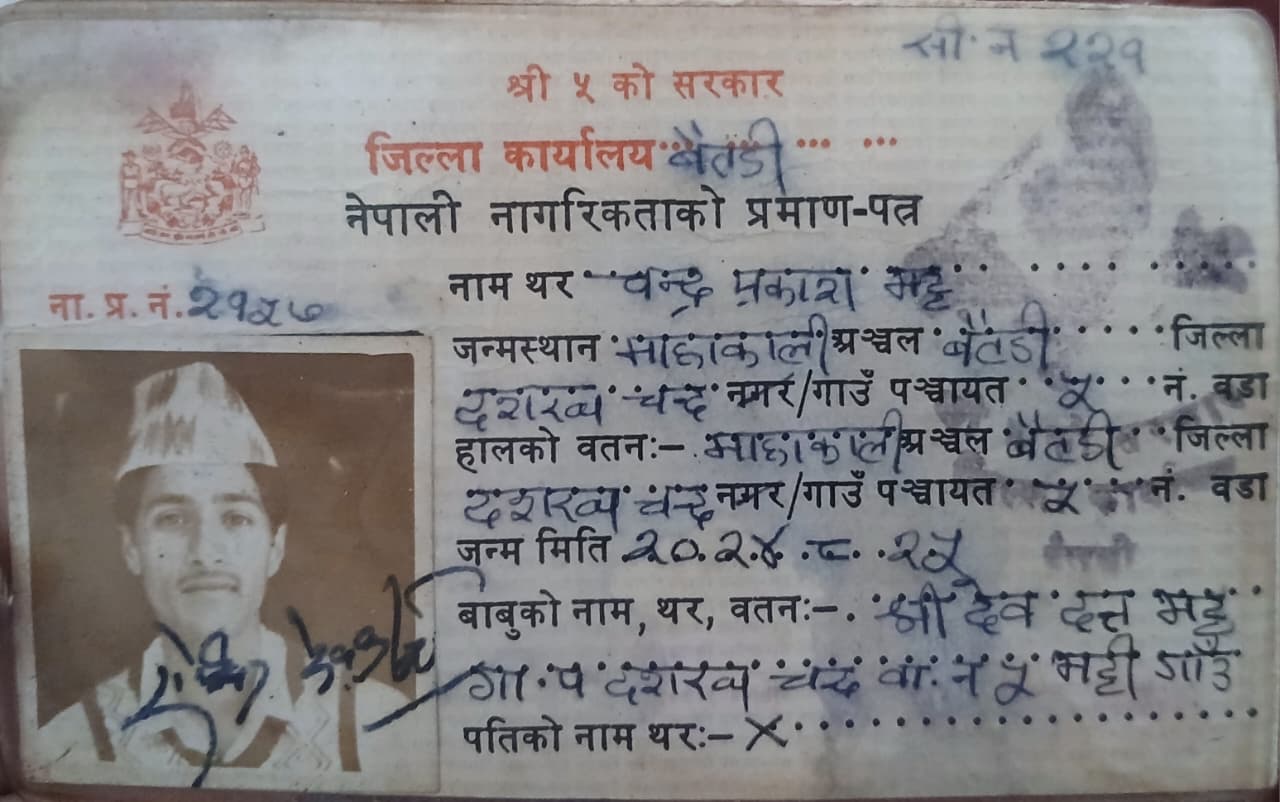 सी. न २२१
श्री ५ को सरकार
जिल्ला कार्यालय बैतडी
नेपाली नागरिकताको प्रमाण-पत्र
ना. प्र. नं. २१५७
नाम थर चन्द्र प्रकाश भट्ट
जन्मस्थान माहाकाली अञ्चल बैतडी जिल्ला
दशरथ चन्द नगर/गाउँ पञ्चायत ५ नं. वडा
हालको वतनः- माहाकाली अञ्चल बैतडी जिल्ला
दशरथ चन्द नगर/गाउँ पञ्चायत ५ नं. वडा
जन्म मिति २०२४.८.२५
बाबुको नाम, थर, वतनः- श्री देव दत्त भट्ट
गा. प दशरथ चंद वा. न ५ भट्टी गाउँ
पतिको नाम थरः- X